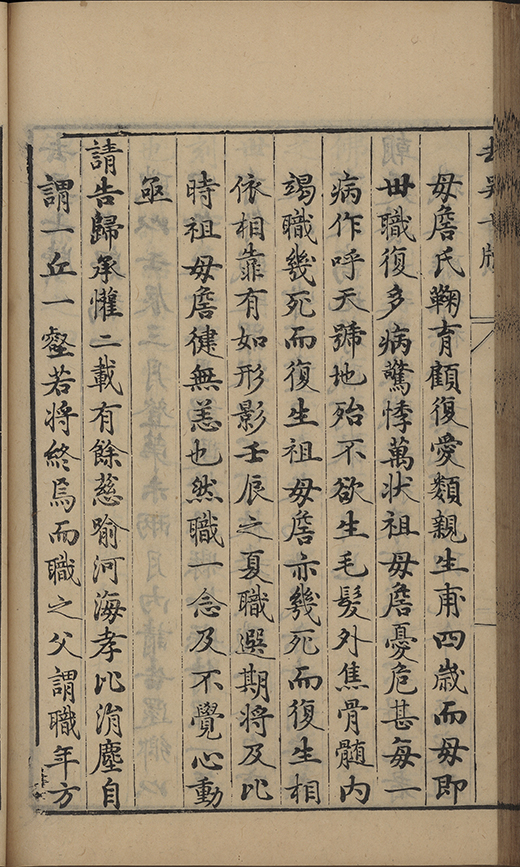 去吳七牘
母詹氏鞠育顧復愛類親生甫四歲而母即
世職復多病驚悸萬狀祖母詹憂危甚每一
病作呼天號地殆不欲生毛髮外焦骨髓內
竭職幾死而復生祖母詹亦幾死而復生相
依相靠有如形影壬辰之夏職選期將及此
時祖母詹健無恙也然職一念及不覺心動
亟
請告歸承懽二載有餘慈喻河海孝比涓塵自
謂一丘一壑若將終焉而職之父謂職年方